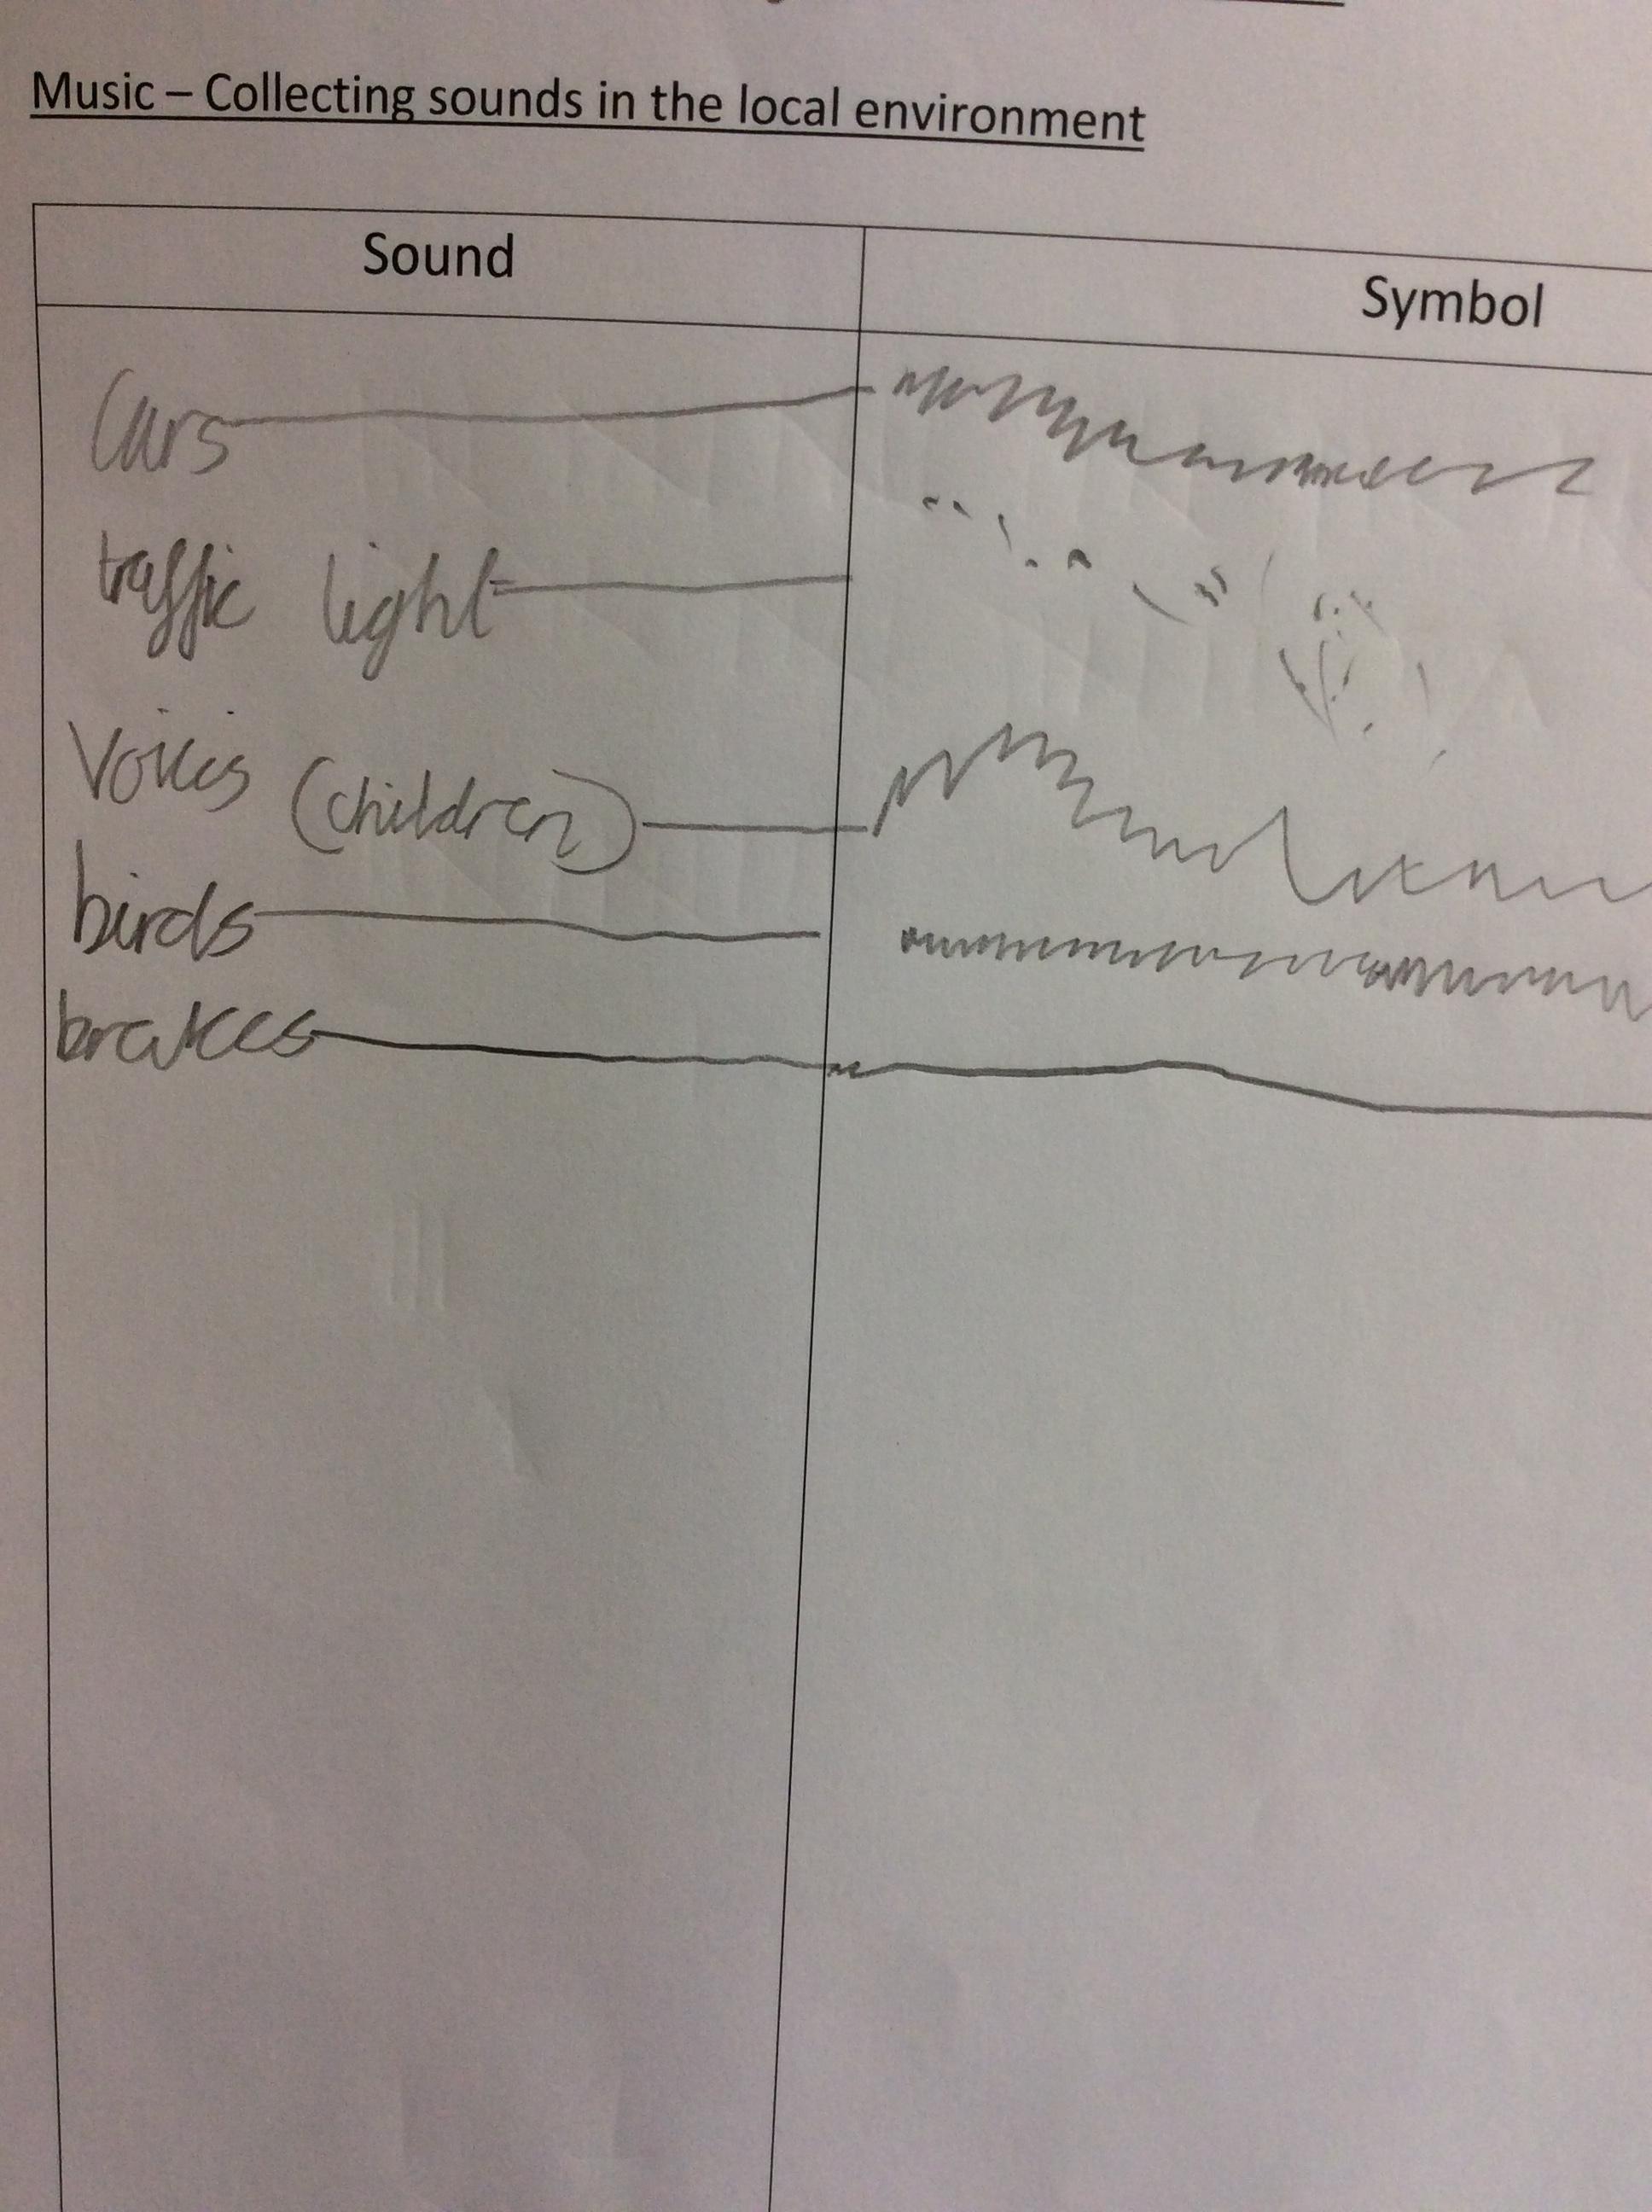 Music – Collecting sounds in the local environment
Sound
Symbol
Cars
traffic light
Voices (children)
birds
brakes